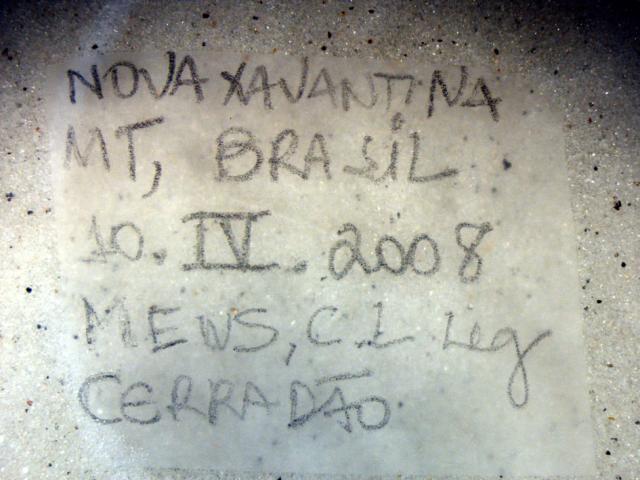 NOVA XAVANTINA
MT, BRASIL
10.IV.2008
MEWS, C.L leg
CERRADÃO